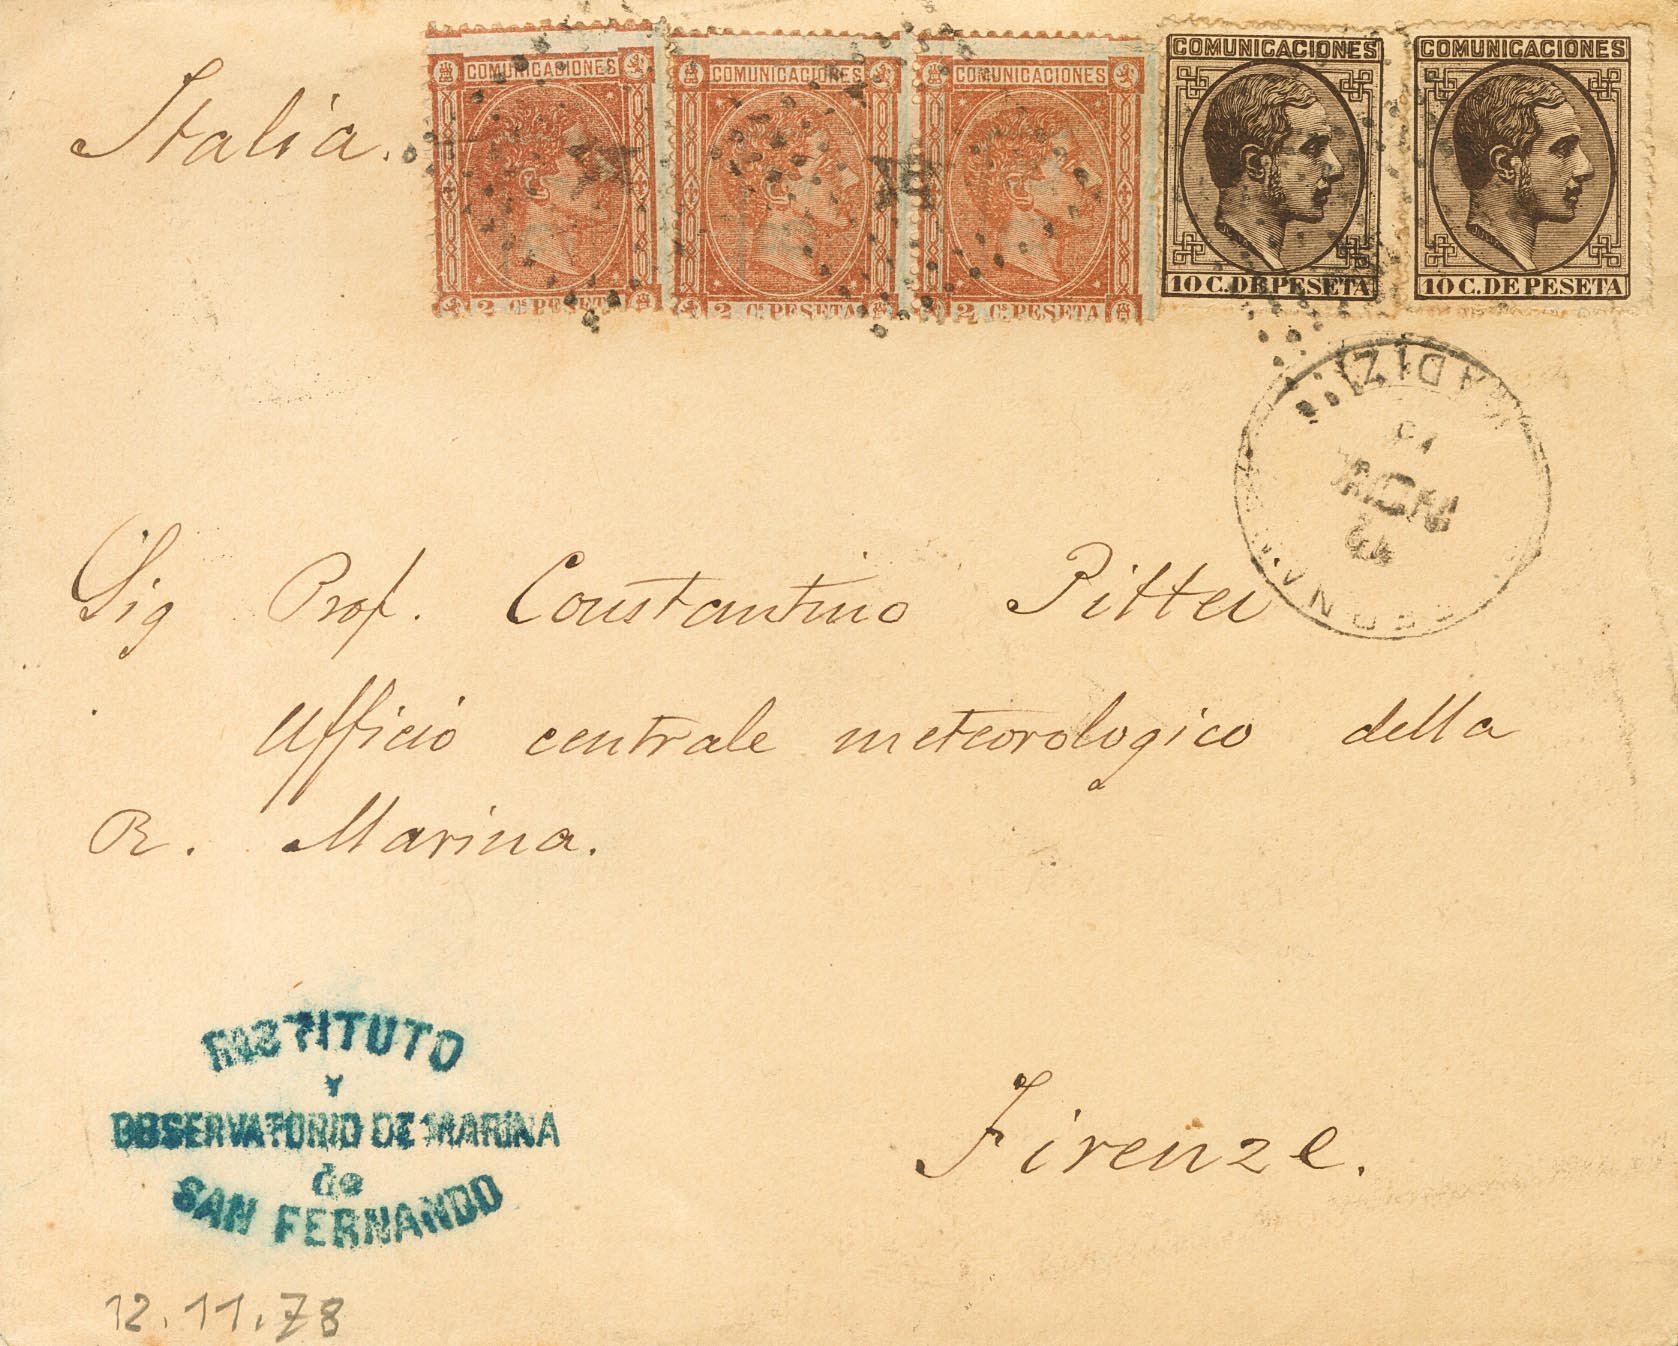 Italia.
COMUNICACIONES COMUNICACIONES COMUNICACIONES COMUNICACIONES COMUNICACIONES
2 Cs PESETA 2 Cs PESETA 2 Cs PESETA 10 C. DE PESETA 10 C. DE PESETA
Sig Prof. Constantino Pittei
Ufficio centrale meteorologico della
R. Marina.
Firenze.
INSTITUTO
Y
OBSERVATORIO DE MARINA
de
SAN FERNANDO
12.11.78